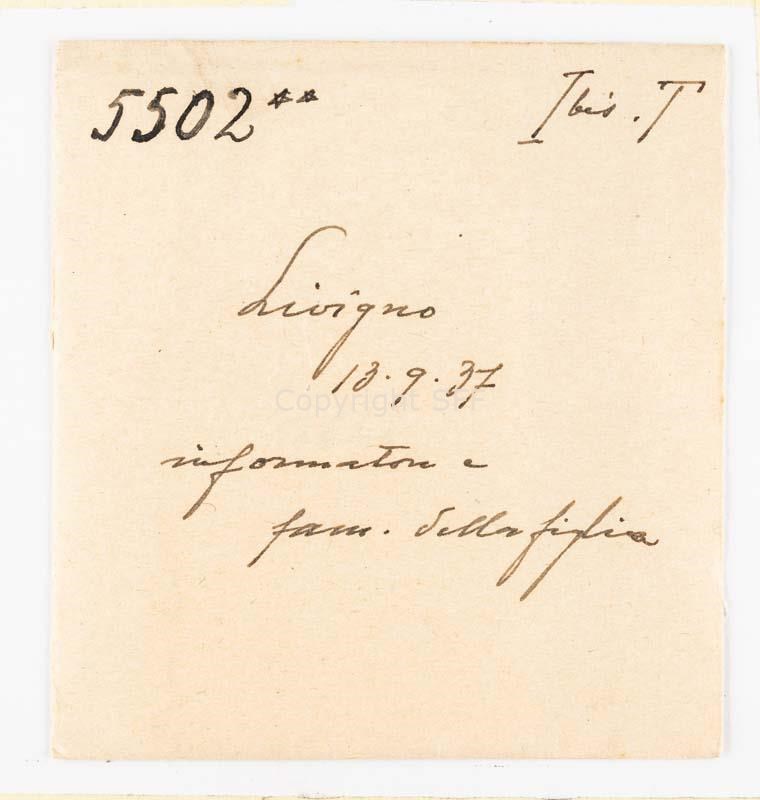 5502** I bis . T
Livigno
13.9.37
Copyright SPF
informatore e
fam. della figlia